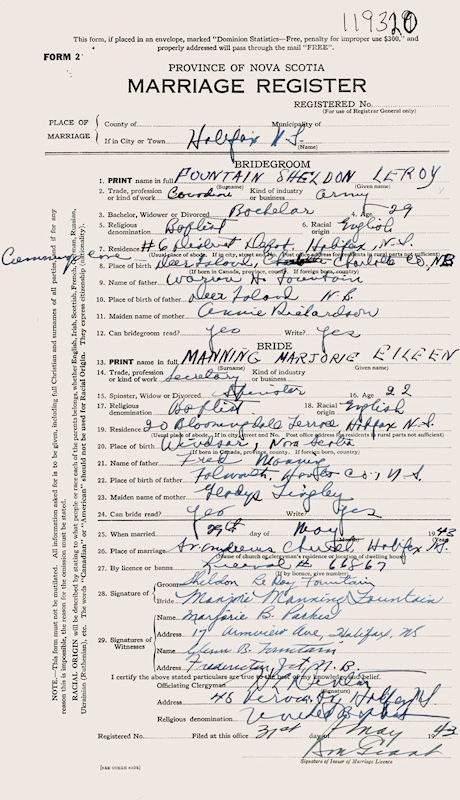 119320
This form, if placed in an envelope, marked "Dominion Statistics—Free, penalty for improper use $300," and
properly addressed will pass through the mail "FREE".
FORM 2
PROVINCE OF NOVA SCOTIA
MARRIAGE REGISTER
REGISTERED No.
(For use of Registrar General only)
PLACE OF MARRIAGE
County of Municipality of
If in City or Town Halifax N.S.
(Name)
BRIDEGROOM
1. PRINT name in full FOUNTAIN SHELDON LEROY
(Surname) (Given name)
2. Trade, profession or kind of work Kind of industry or business Army
3. Bachelor, Widower or Divorced Bachelor 4. Age 29
5. Religious denomination Baptist 6. Racial origin English
7. Residence #6 District Depot, Halifax, N.S.
(Usual place of abode. If in city, street and No. Post office address for residents in rural parts not sufficient)
8. Place of birth Deer Island, Charlotte Co, NB
(If born in Canada, province, county. If foreign, country)
9. Name of father Warren H. Fountain
10. Place of birth of father Deer Island N.B.
11. Maiden name of mother Annie Richardson
12. Can bridegroom read? Yes Write? Yes
BRIDE
13. PRINT name in full MANNING MARJORIE EILEEN
(Surname) (Given name)
14. Trade, profession or kind of work Secretary Kind of industry or business
15. Spinster, Widow or Divorced Spinster 16. Age 22
17. Religious denomination Baptist 18. Racial origin English
19. Residence 20 Bloomingdale Terrace Halifax N.S.
(Usual place of abode. If in city street and No. Post office address for residents in rural parts not sufficient)
20. Place of birth Windsor, Nova Scotia
(If born in Canada, province, county. If foreign, country)
21. Name of father Fred Manning
22. Place of birth of father Falmouth, Hants Co., N.S.
23. Maiden name of mother Gladys Lingley
24. Can bride read? Yes Write? Yes
25. When married 29th day of May 1943
(Month) (Year)
26. Place of marriage St Andrews Chapel Halifax N.S.
(Name of church or clergyman's residence or location of dwelling house)
27. By licence or banns # 66867
(If by licence, give number)
28. Signature of
Groom Sheldon Le Roy Fountain
Bride Marjorie Manning Fountain
29. Signature of Witnesses
Name Marjorie B. Parkes
Address 17 Armview Ave, Halifax, NS
Name Glenn B. Fountain
Address Fredericton Jct, N.B.
I certify the above stated particulars are true to the best of my knowledge and belief.
Officiating Clergyman
(Signature)
Address 45
Religious denomination United Baptist
Registered No. Filed at this office 31st day of May 1943
Signature of Issuer of Marriage Licence
[SEE OTHER SIDE]
NOTE.—This form must not be mutilated. All information asked for is to be given, including full Christian and surnames of all parties and if for any
reason this is impossible, the reason for the omission must be stated.
RACIAL ORIGIN will be described by stating to what people or race each of the parents belongs, whether English, Irish, Scottish, French, German, Russian,
Ukrainian (Ruthenian), etc. The words "Canadian" or "American" should not be used for Racial Origin. They express citizenship (nationality).